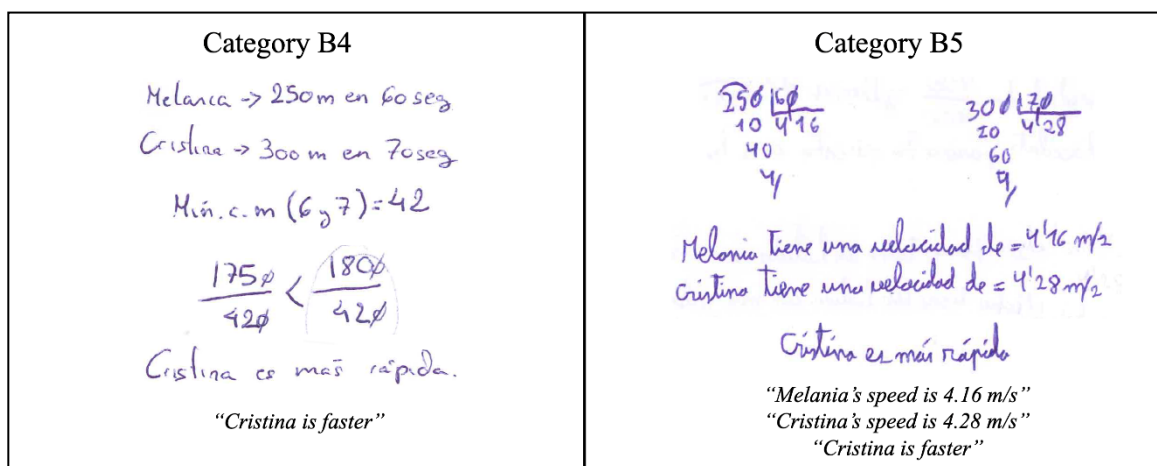 Category B4
Melania -> 250m en 60 seg
Cristina -> 300m en 70 seg
Mín. c. m (6 y 7) = 42
1750 < 1800
420 420
Cristina es más rápida.
"Cristina is faster"
Category B5
250 | 60
10 4'16
40
4
300 | 70
20 4'28
60
4
Melania tiene una velocidad de = 4'16 m/s
Cristina tiene una velocidad de = 4'28 m/s
Cristina es más rápida
"Melania's speed is 4.16 m/s"
"Cristina's speed is 4.28 m/s"
"Cristina is faster"